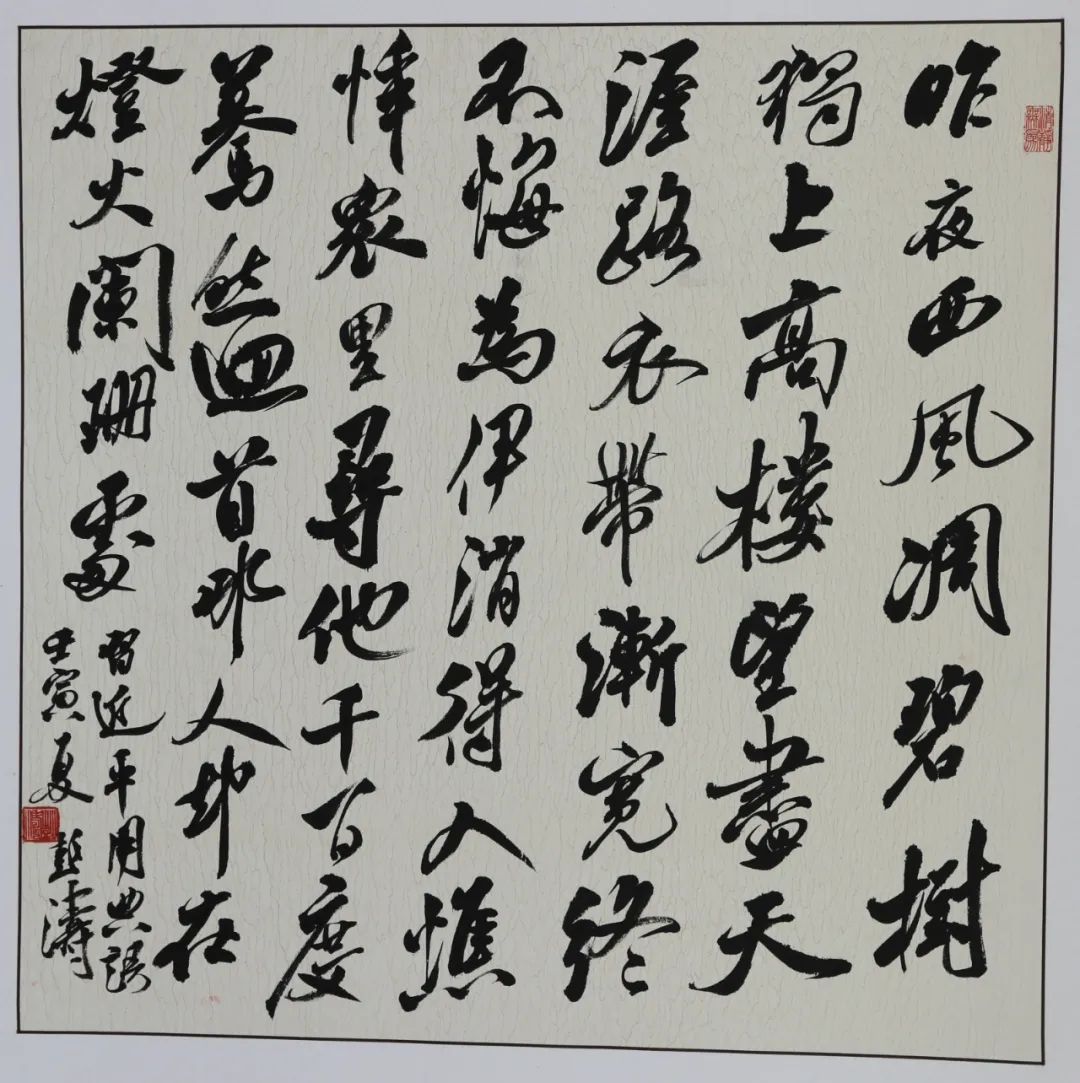 昨夜西風凋碧樹
獨上高樓望盡天
涯路衣帶漸寬終
不悔為伊消得人憔
悴衆里尋他千百度
驀然迴首那人却在
燈火闌珊處
習近平用典語
壬寅夏彭濤